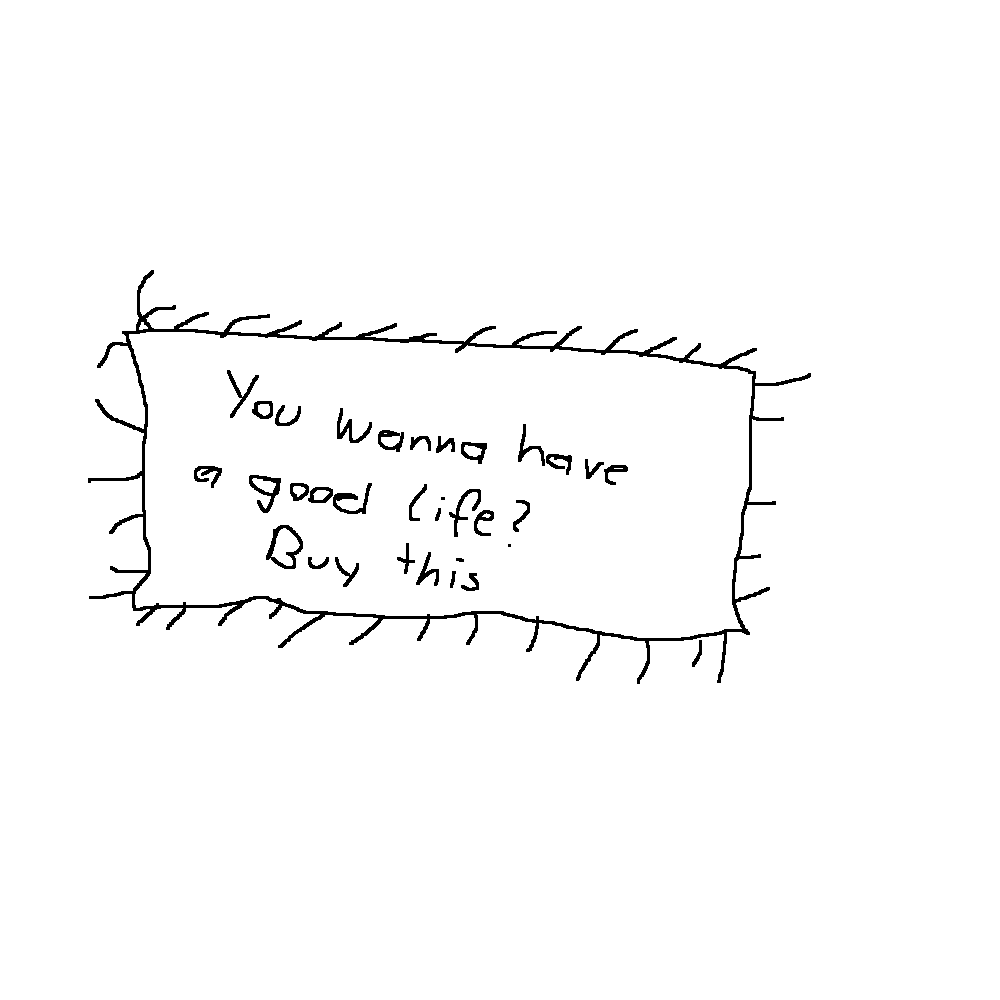 You wanna have
a good life?
Buy this